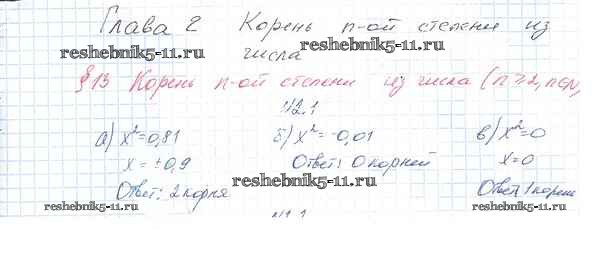 Глава 2 Корень n-ой степени из
reshebnik5-11.ru. числа reshebnik5-11.ru
§13 Корень n-ой степени из числа (n≥2, n∈N,
12.1
а) x²=0,81 б) x²=-0,01 в) x²=0
x=±0,9 Ответ: 0 корней x=0
Ответ: 2 корня reshebnik5-11.ru Ответ: 1 корень
reshebnik5-11.ru reshebnik5-11.ru